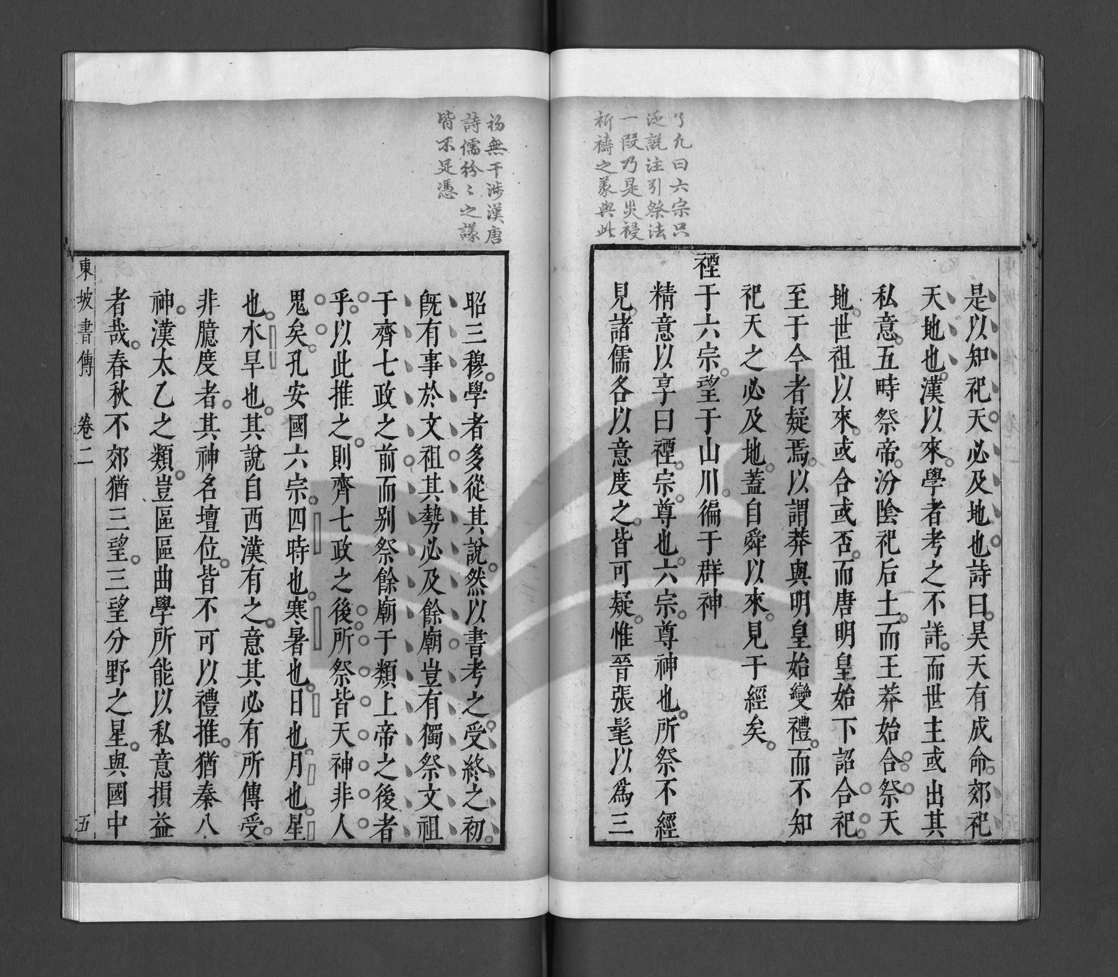 了凡曰六宗只
泛說注引祭法
一段乃是災祲
祈禱之義與此
是以知祀天必及地也詩曰昊天有成命郊祀
天地也漢以來學者考之不詳而世主或出其
私意五時祭帝汾陰祀后土而王莽始合祭天
地世祖以來或合或否而唐明皇始下詔合祀
至于今者疑焉以謂莽與明皇始變禮而不知
祀天之必及地蓋自舜以來見于經矣
禋于六宗望于山川徧于群神
精意以享曰禋宗尊也六宗尊神也所祭不經
見諸儒各以意度之皆可疑惟晉張髦以為三
初無干涉漢唐
諸儒紛〻之議
皆不足憑
昭三穆學者多從其說然以書考之受終之初
旣有事於文祖其勢必及餘廟豈有獨祭文祖
于齊七政之前而別祭餘廟于類上帝之後者
乎以此推之則齊七政之後所祭皆天神非人
鬼矣孔安國六宗四時也寒暑也日也月也星
也水旱也其說自西漢有之意其必有所傳受
非臆度者其神名壇位皆不可以禮推猶秦八
神漢太乙之類豈區區曲學所能以私意損益
者哉春秋不郊猶三望三望分野之星與國中
東坡書傳 卷二 五